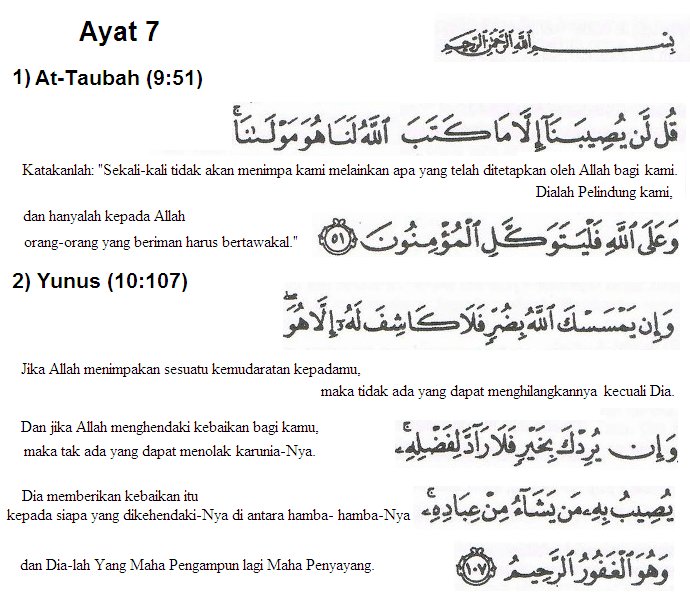 Ayat 7
بِسْمِ اللَّهِ الرَّحْمَٰنِ الرَّحِيمِ
1) At-Taubah (9:51)
قُل لَّن يُصِيبَنَآ إِلَّا مَا كَتَبَ ٱللَّهُ لَنَا هُوَ مَوْلَىٰنَا ۚ
Katakanlah: "Sekali-kali tidak akan menimpa kami melainkan apa yang telah ditetapkan oleh Allah bagi kami.
Dialah Pelindung kami,
dan hanyalah kepada Allah
orang-orang yang beriman harus bertawakal."
وَعَلَى ٱللَّهِ فَلْيَتَوَكَّلِ ٱلْمُؤْمِنُونَ ٥١
2) Yunus (10:107)
وَإِن يَمْسَسْكَ ٱللَّهُ بِضُرٍّ فَلَا كَاشِفَ لَهُۥٓ إِلَّا هُوَ ۖ
Jika Allah menimpakan sesuatu kemudaratan kepadamu,
maka tidak ada yang dapat menghilangkannya kecuali Dia.
Dan jika Allah menghendaki kebaikan bagi kamu,
maka tak ada yang dapat menolak karunia-Nya.
وَإِن يُرِدْكَ بِخَيْرٍ فَلَا رَآدَّ لِفَضْلِهِۦ ۚ
Dia memberikan kebaikan itu
kepada siapa yang dikehendaki-Nya di antara hamba- hamba-Nya
يُصِيبُ بِهِۦ مَن يَشَآءُ مِنْ عِبَادِهِۦ ۚ
وَهُوَ ٱلْغَفُورُ ٱلرَّحِيمُ ١٠٧
dan Dia-lah Yang Maha Pengampun lagi Maha Penyayang.